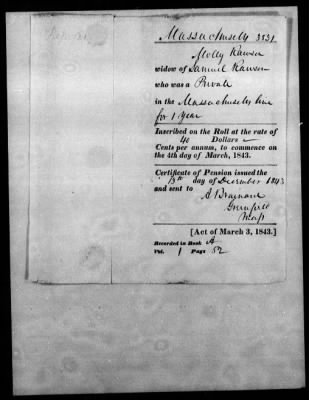 Massachusetts 3531
Molly Rawson
widow of Samuel Rawson
who was a Private
in the Massachusetts line
for 1 year
Inscribed on the Roll at the rate of
40 Dollars
Cents per annum, to commence on
the 4th day of March, 1843.
Certificate of Pension issued the
13th day of December 1843
and sent to
A Brainard
Greenfield
Mass
[Act of March 3, 1843.]
Recorded in Book A
Vol. 1 Page 52